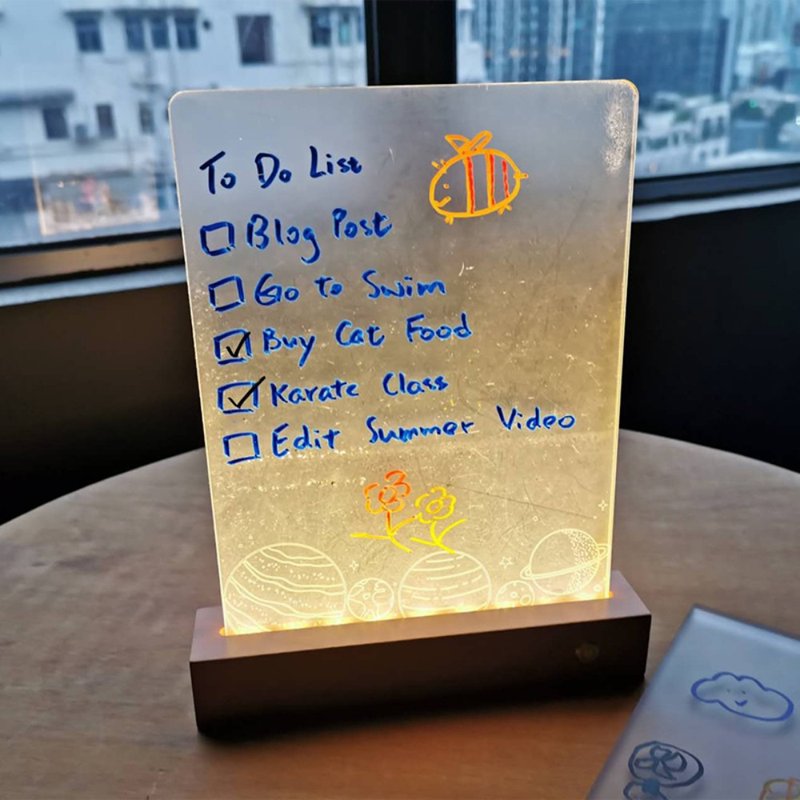 To Do List
Blog Post
Go to Swim
Buy Cat Food
Karate Class
Edit Summer Video